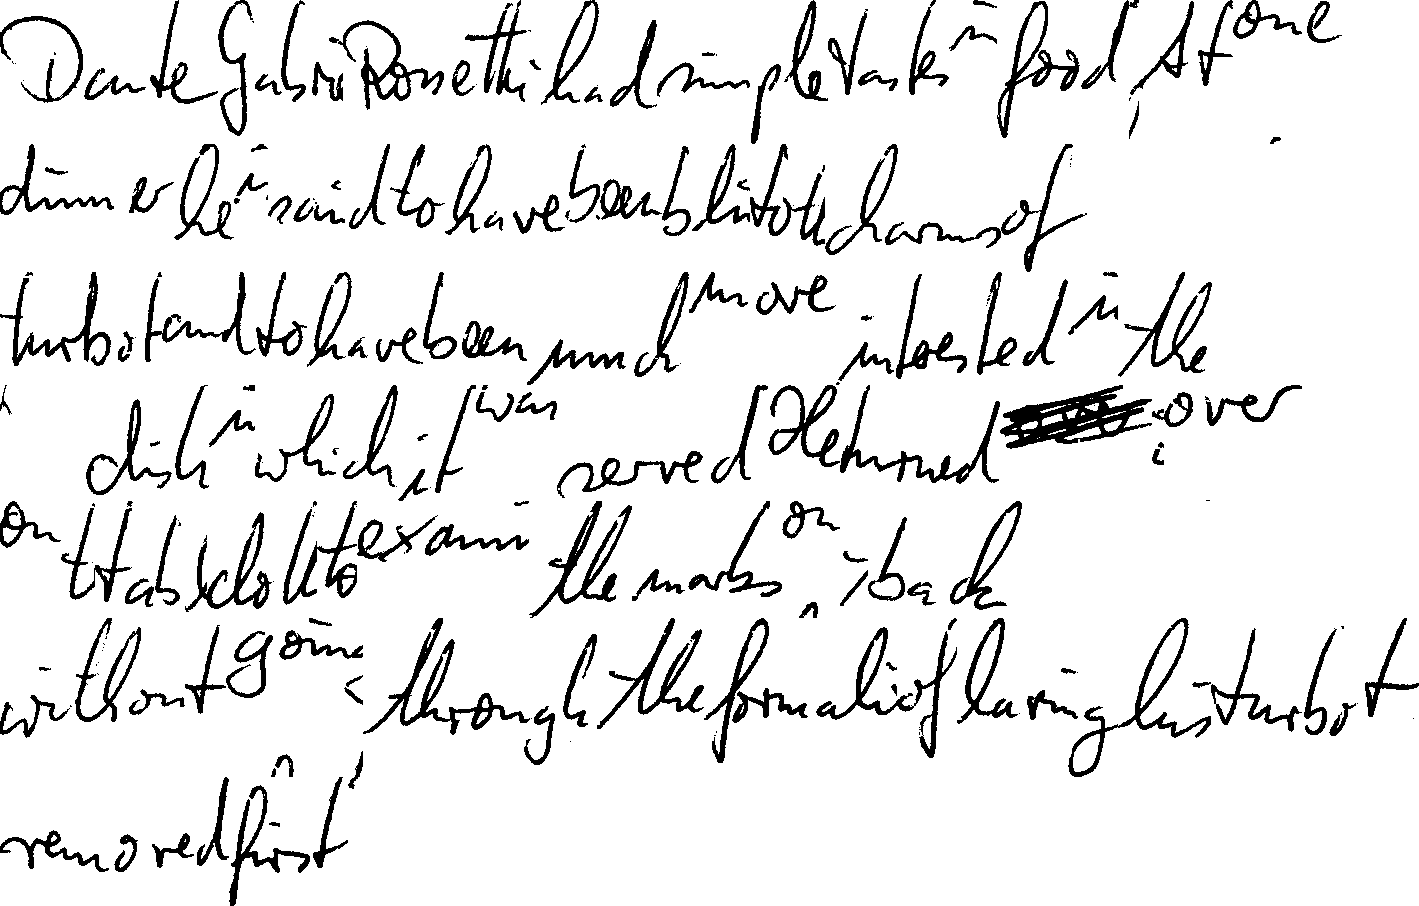 Dante Gabriel Rossetti had simple tastes in food. At one
dinner he is said to have been blind to the charms of
turbot and to have been much more interested in the
dish in which it was served He turned over
on the table cloth to examine the marks on its back
without going through the formality of having his turbot
removed first